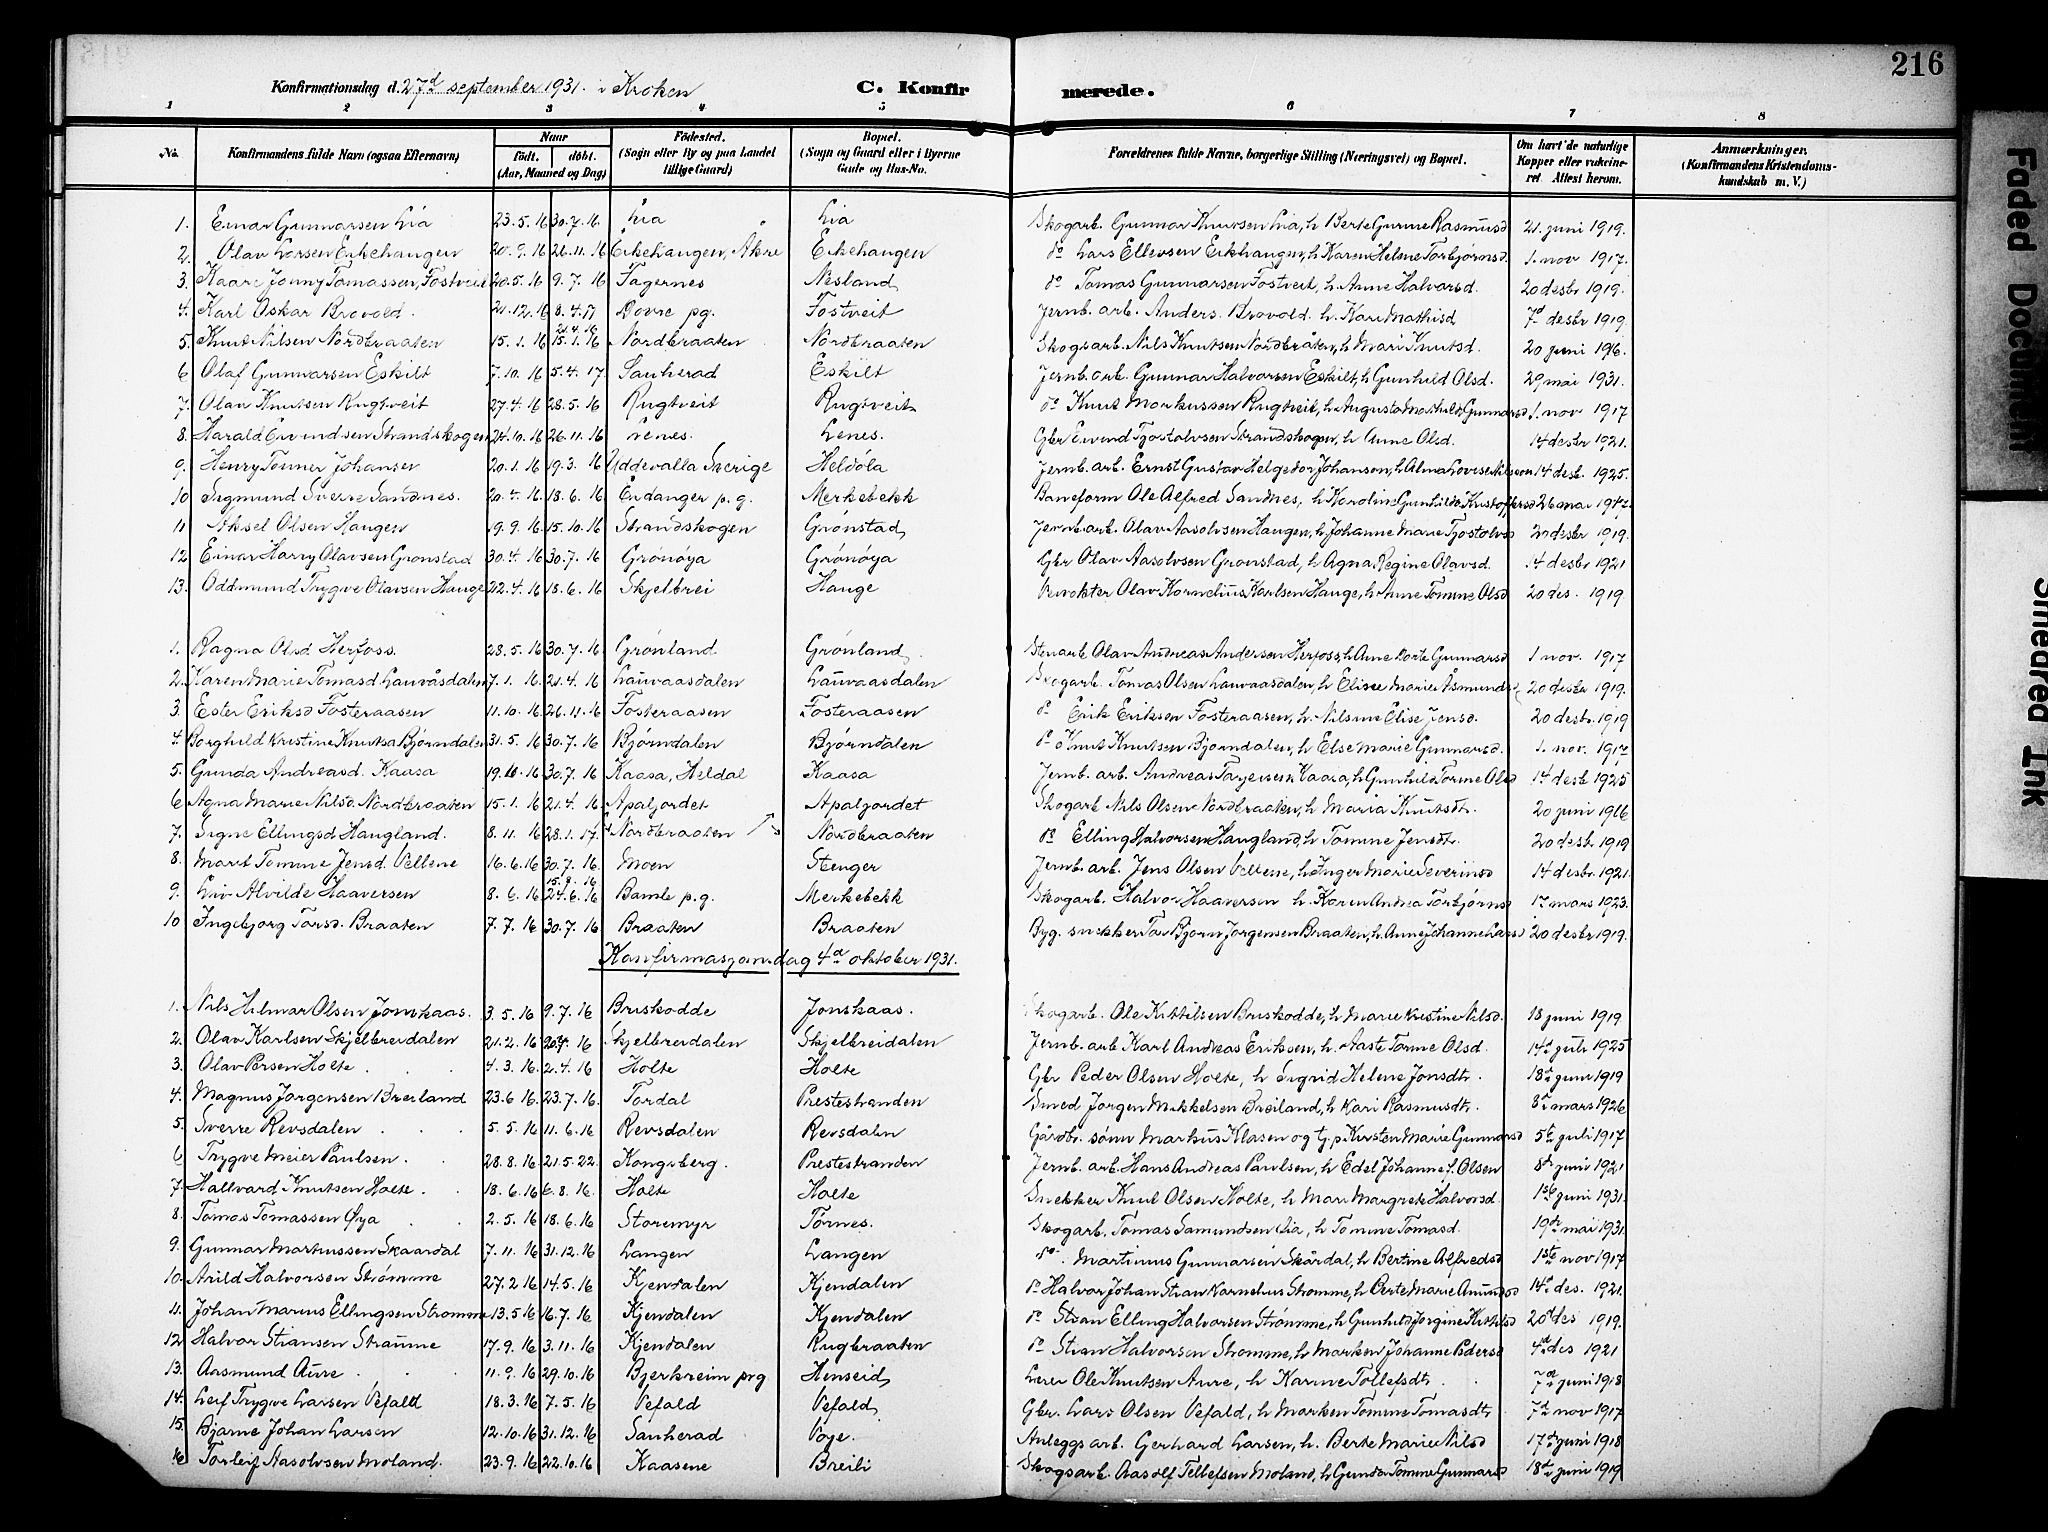 216
Konfirmationsdag d. 27d september 1931. i Kroken C. Konfirmerede.
1 2 3 4 5 6 7 8
No. Konfirmandens fulde Navn (ogsaa Efternavn) Naar født. døbt. (Aar, Maaned og Dag) Fødested. (Sogn eller By og paa Landet tillige Gaard) Bopæl. (Sogn og Gaard eller i Byerne Gade og Hus-No. Forældrenes fulde Navne, borgerlige Stilling (Næringsvei) og Bopæl. Om havt de naturlige Kopper eller vaccineret Attest herom. Anmærkninger. (Konfirmandens Kristendomskundskab m. V.)
1. Einar Gunnarsen Lia 23.5.16 30.7.16 Lia Lia Skogarb. Gunnar Knutsen Lia, h Berte Gurine Rasmusd 21. juni 1919.
2. Olav Larsen Eikehaugen 20.9.16 26.11.16 Eikehaugen, Åkre Eikehaugen do Lars Ellevsen Eikhaugen, h Karen Helene Torbjørnsd. 1. nov 1917.
3. Kaare Jonny Tomassen, Fostveit 20.5.16 9.7.16 Fagernes Nesland do Tomas Gunnarsen Fostveit, h. Anne Halvorsd. 20 desbr 1919.
4. Karl Oskar Brovold. 21.12.16 8.4.17 Dovre pg. Fostveit Jernb. arb. Anders. Brovold. h. Kari Mathisd 7d desbr 1919.
5. Knut Nilsen Nordbraaten 15.1.16 21.4.16 15.1.16 Nordbraaten Nordbraaten Skogsarb. Nils Knutsen Nordbråten, h Mari Knutsd. 20 juni 1916.
6 Olaf Gunnarsen Eskilt 7.10.16 5.4.17 Sauherad Eskilt Jernb. arb. Gunnar Halvorsen Eskilt, h Gunhild Olsd. 29 mai 1931.
7. Olav Knutsen Rugtveit 27.4.16 28.5.16 Rugtveit Rugtveit do Knut Markussen Rugtveit, h Augusta Mathilde Gunnarsd 1. nov 1917
8. Harald Eivindsen Strandskogen 24.10.16 26.11.16 Lenes. Lenes. Gbr Eivind Tjostolvsen Strandskogen, h Anne Olsd. 14 desbr 1921.
9. Henry Tonner Johansen 20.1.16 19.3.16 Uddevalla Sverige Heldøla Jernb. arb. Ernst Gustav Helgedor Johanson, h Alma Lovise Nilsson 14 desb. 1925.
10 Sigmund Sverre Sandnes. 20.4.16 18.6.16 Eidanger p.g. Merkebekk Baneform Ole Alfred Sandnes, h Karoline Gunhilde Kristoffersd 26 mai
11 Aksel Olsen Haugen 19.9.16 15.10.16 Strandskogen Grønstad Jernb. arb. Olav Aasolvsen Haugen, h Johanne Marie Tjostolvsd 20 desbr 1919.
12 Einar Harry Olavsen Grønstad 30.4.16 30.7.16 Grønøya Grønøya Gbr Olav Aasolvsen Grønstad, h Agna Regine Olavsd. 14 desbr 1921
13. Oddmund Trygve Olavsen Hauge 22.4.16 18.6.16 Skjelbrei Hauge Olav Kornelius Karlsen Hauge, h. Anne Tomine Olsd 20 des. 1919.
1. Ragna Olsd Herfoss. 28.5.16 30.7.16 Grønland Grønland Olav Andreas Andersen Herfoss, h Anne Dorte Gunnarsd 1 nov. 1917
2. Karen Marie Tomasd Lauvåsdalen 7.1.16 21.4.16 Lauvaasdalen Lauvaasdalen Skogarb. Tomas Olsen Lauvaasdalen, h Elisee Marie Åsmundsd 20 desbr 1919.
3. Ester Eriksd Fosteraasen 11.10.16 26.11.16 Fosteraasen Fosteraasen do Erik Eriksen Fosteraasen, h. Nilsine Elise Jensd. 20 desbr. 1919
4. Borghild Kristine Knutsd Bjørndalen 31.5.16 30.7.16 Bjørndalen Bjørndalen do Knut Knutsen Bjørndalen, h Else Marie Gunnarsd. 1. nov. 1917
5. Gunda Andreasd. Kaasa 19.10.16 30.7.16 Kaasa, Heldal Kaasa Jernb. arb. Andreas Tarjeisen Kaasa, h Gunhild Tomine Olsd 14 desbr 1925
6 Agna Marie Nilsd. Nordbraaten 15.1.16 21.4.16 Apaljordet Apaljordet Skogarb Nils Olsen Nordbraaten, h Maria Knutsdt. 20 juni 1916
7. Signe Ellingsd Haugland. 8.11.16 28.1.17 Nordbraaten Nordbraaten do Elling Halvorsen Haugland, h Tomine Jensdt. 20 desbr 1919
8. Marit Tomine Jensd. Vellene 16.6.16 30.7.16 Moen Stenger Jernb. arb. Jens Olsen Vellene, h Inger Marie Severinsd 14 desbr. 1921.
9. Liv Alvilde Haaversen 8.6.16 24.6.16 Bamle p.g. Merkebekk Skogarb. Halvor Haaversen h. Karen Andrea Torbjørnsd 17 mars 1923.
10 Ingebjørg Torsd. Braaten 7.7.16 30.7.16 Braaten Braaten Byg. snekker Tor Bjørn Jørgensen Braaten, h. Anne Johanne Larsd 20 desbr 1919.
Konfirmasjonsdag 4d oktober 1931.
1. Nils Hilmar Olsen Jonskaas. 3.5.16 9.7.16 Briskodde Jonskaas. Skogarb. Ole Kittilsen Briskodde, h Marie Kristine Nilsd. 18 juni 1919
2. Olav Karlsen Skjelbreidalen 21.2.16 Skjelbreidalen Skjelbreidalen Jernb. arb Karl Andreas Eriksen, h. Aaste Tomine Olsd. 14d juli 1925
3. Olav Persen Holte 4.3.16 2.4.16 Holte Holte Gbr Peder Olsen Holte, h Sigrid Helene Jonsdtr. 18d juni 1919
4. Magnus Jørgensen Breiland 23.6.16 23.7.16 Tørdal Prestestranden Smed Jørgen Mikkelsen Breiland, h Kari Rasmusdtr. 8d mars 1926
5. Sverre Revsdalen 5.5.16 11.6.16 Revsdalen Revsdalen Gårdbr. sønn Markus Klasen og tj.p. Kirsten Marie Gunnarsd 5te juli 1917
6 Trygve Meier Paulsen. 28.8.16 21.5.22. Kongsberg. Prestestranden Jernb. arb. Hans Andreas Paulsen, h Edel Johanne L. Olsen 8de juni 1921
7. Hallvard Knutsen Holte. 18.6.16 6.8.16. Holte Holte Snekker Knut Olsen Holte, h Mari Margrete Halvorsd. 1ste juni 1931.
8. Tomas Tomassen Øya 2.5.16 18.6.16 Storemyr Tørnes. Skogarb. Tomas Samundsen Øia, h Tomine Tomasd. 19de mai 1931.
9. Gunnar Martinussen Skaardal 7.11.16 31.12.16 Langen Langen do Martinus Gunnarsen Skårdal, h Bertine Alfredsd 1ste nov 1917
10. Arild Halvorsen Strømme 27.2.16 14.5.16 Kjendalen Kjendalen do Halvor Johan Stian Kornelius Strømme, h Berte Marie Amundsd 14d des. 1921.
11. Johan Marius Ellingsen Strømme 13.5.16 16.7.16 Kjendalen Kjendalen do Stian Elling Halvorsen Strømme, h Gunhild Jørgine Kittilsd 20d des 1919.
12 Halvor Stiansen Straume 17.9.16 3.11.16 Kjendalen Rugbraaten do Stian Halvorsen Strømme, h. Marken Johanne Pedersd 4d des 1921
13. Aasmund Aure 11.9.16 29.10.16 Bjerkreim prg Henseid Lærer Ole Knutsen Aure, h Karine Tollefsdtr. 7d juni 1918
14. Leif Trygve Larsen Vefald 18.3.16 7.5.16 Vefald Vefald Gbr. Lars Olsen Vefald, h Marken Tomine Tomasdtr. 7d nov 1917
15. Bjarne Johan Larsen 12.10.16 31.12.16 Sauherad Voje. Anleggsarb. Gerhard Larsen, h. Berte Marie Nilsd 17de juni 1918
16 Torleif Aasolvsen Moland. 23.9.16 22.10.16 Kaasene Breili Skogsarb. Aasolf Tellefsen Moland, h Gunda Tomine Gunnarsd 18de juni 1919
Faded Document
Smeared Ink